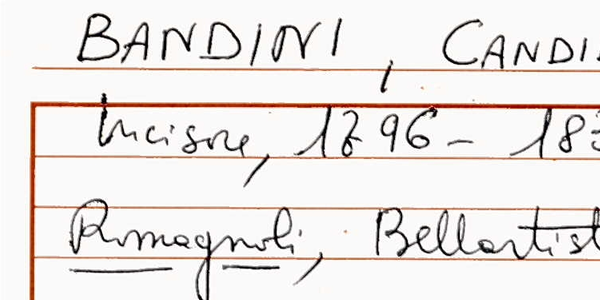 BANDINI, CANDI
Incisore, 1796 - 183
Romagnoli, Bellartist